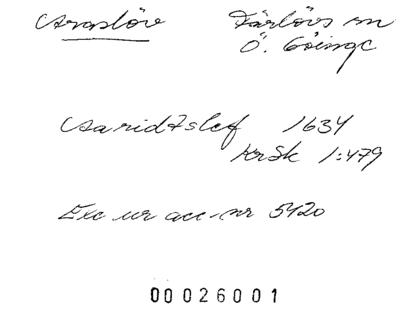 Araslöv Färlövs sn
Ö. Göinge
Aaridtslef 1634
KrSk 1:479
Exc ur acc-nr 5420
00026001